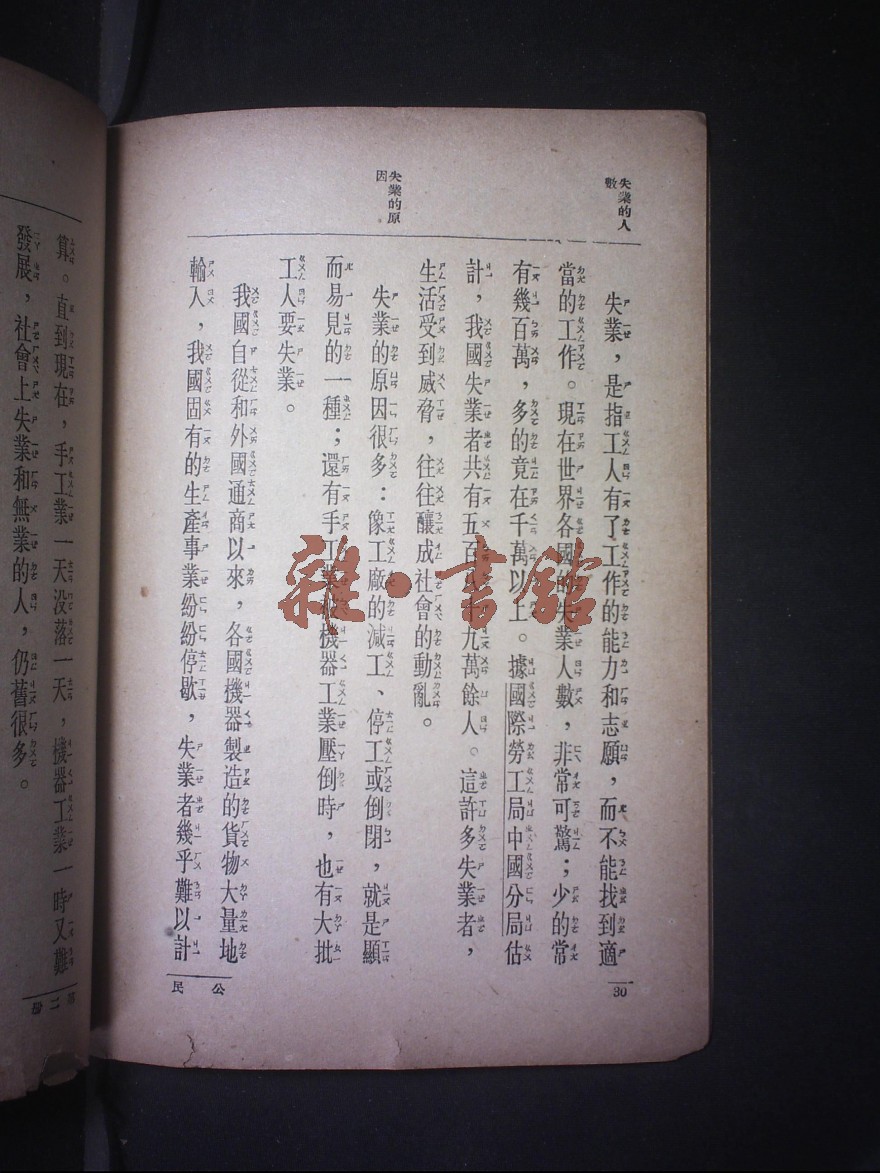 失業的人
數
失業，是指工人有了工作的能力和志願，而不能找到適
當的工作。現在世界各國的失業人數，非常可驚；少的常
有幾百萬，多的竟在千萬以上。據國際勞工局中國分局估
計，我國失業者共有五百九萬餘人。這許多失業者，
生活受到威脅，往往釀成社會的動亂。
失業的原
因
失業的原因很多：像工廠的减工、停工或倒閉，就是顯
而易見的一種；還有手工業機器工業壓倒時，也有大批
工人要失業。
我國自從和外國通商以來，各國機器製造的貨物大量地
輸入，我國固有的生產事業紛紛停歇，失業者幾乎難以計
30
公民
雜·書館
算。直到現在，手工業一天没落一天，機器工業一時又難
發展，社會上失業和無業的人，仍舊很多。